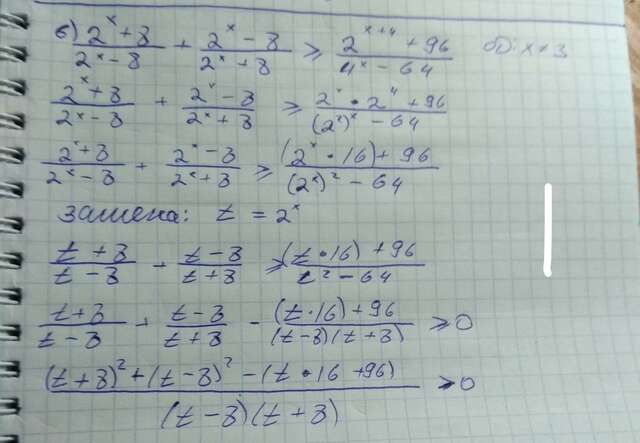 в) \frac{2^x+8}{2^x-8} + \frac{2^x-8}{2^x+8} ≥ \frac{2^{x+4}+96}{4^x-64} x ≠ 3
\frac{2^x+8}{2^x-8} + \frac{2^x-8}{2^x+8} ≥ \frac{2^x · 2^4+96}{(2^2)^x-64}
\frac{2^x+8}{2^x-8} + \frac{2^x-8}{2^x+8} ≥ \frac{(2^x · 16)+96}{(2^x)^2-64}
замена: t = 2^x
\frac{t+8}{t-8} + \frac{t-8}{t+8} ≥ \frac{(t·16)+96}{t^2-64}
\frac{t+8}{t-8} + \frac{t-8}{t+8} - \frac{(t·16)+96}{(t-8)(t+8)} ≥ 0
\frac{(t+8)^2+(t-8)^2-(t·16+96)}{(t-8)(t+8)} ≥ 0